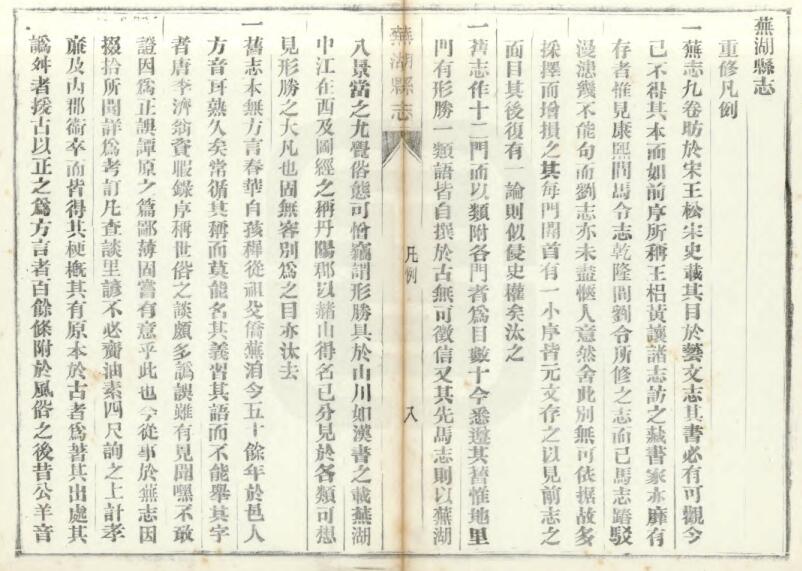 蕪湖縣志
重修凡例
一蕪志九卷昉於宋王松宋史載其目於藝文志其書必有可觀今
已不得其本而如前序所稱王梠黃讓諸志訪之藏書家亦靡有
存者惟見康熙間馬令志乾隆間劉令所修之志而已馬志踳駁
漫漶幾不能句而劉志亦未盡愜人意然舍此別無可依据故多
採擇而增損之其每門開首有一小序皆元文存之以見前志之
面目其後復有一論則似侵史權矣汰之
一舊志作十二門而以類附各門者爲目數十今悉遵其舊惟地里
門有形勝一類語皆自撰於古無可徵信又其先馬志則以蕪湖
蕪湖縣志
凡例
八
八景當之尤覺俗態可憎竊謂形勝具於山川如漢書之載蕪湖
中江在西及圖經之稱丹陽郡以赭山得名已分見於各類可想
見形勝之大凡也固無容別爲之目亦汰去
一舊志本無方言春華自孩穉從祖父僑蕪洎今五十餘年於邑人
方音耳熟久矣常循其稱而莫能名其義習其語而不能舉其字
者唐李濟翁資暇錄序稱世俗之談頗多譌誤雖有見聞嘿不敢
證因爲正誤譚原之篇鄙薄固嘗有意乎此也今從事於蕪志因
掇拾所聞詳爲考訂凡查談里諺不必齎油素四尺詢之上計孝
廉及內郡衞卒而皆得其梗槪其有原本於古者爲著其出處其
譌舛者援古以正之爲方言者百餘條附於風俗之後昔公羊音